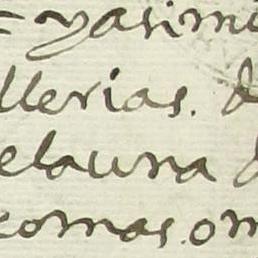 yasimi
llerias. d
elauna d
comas. om